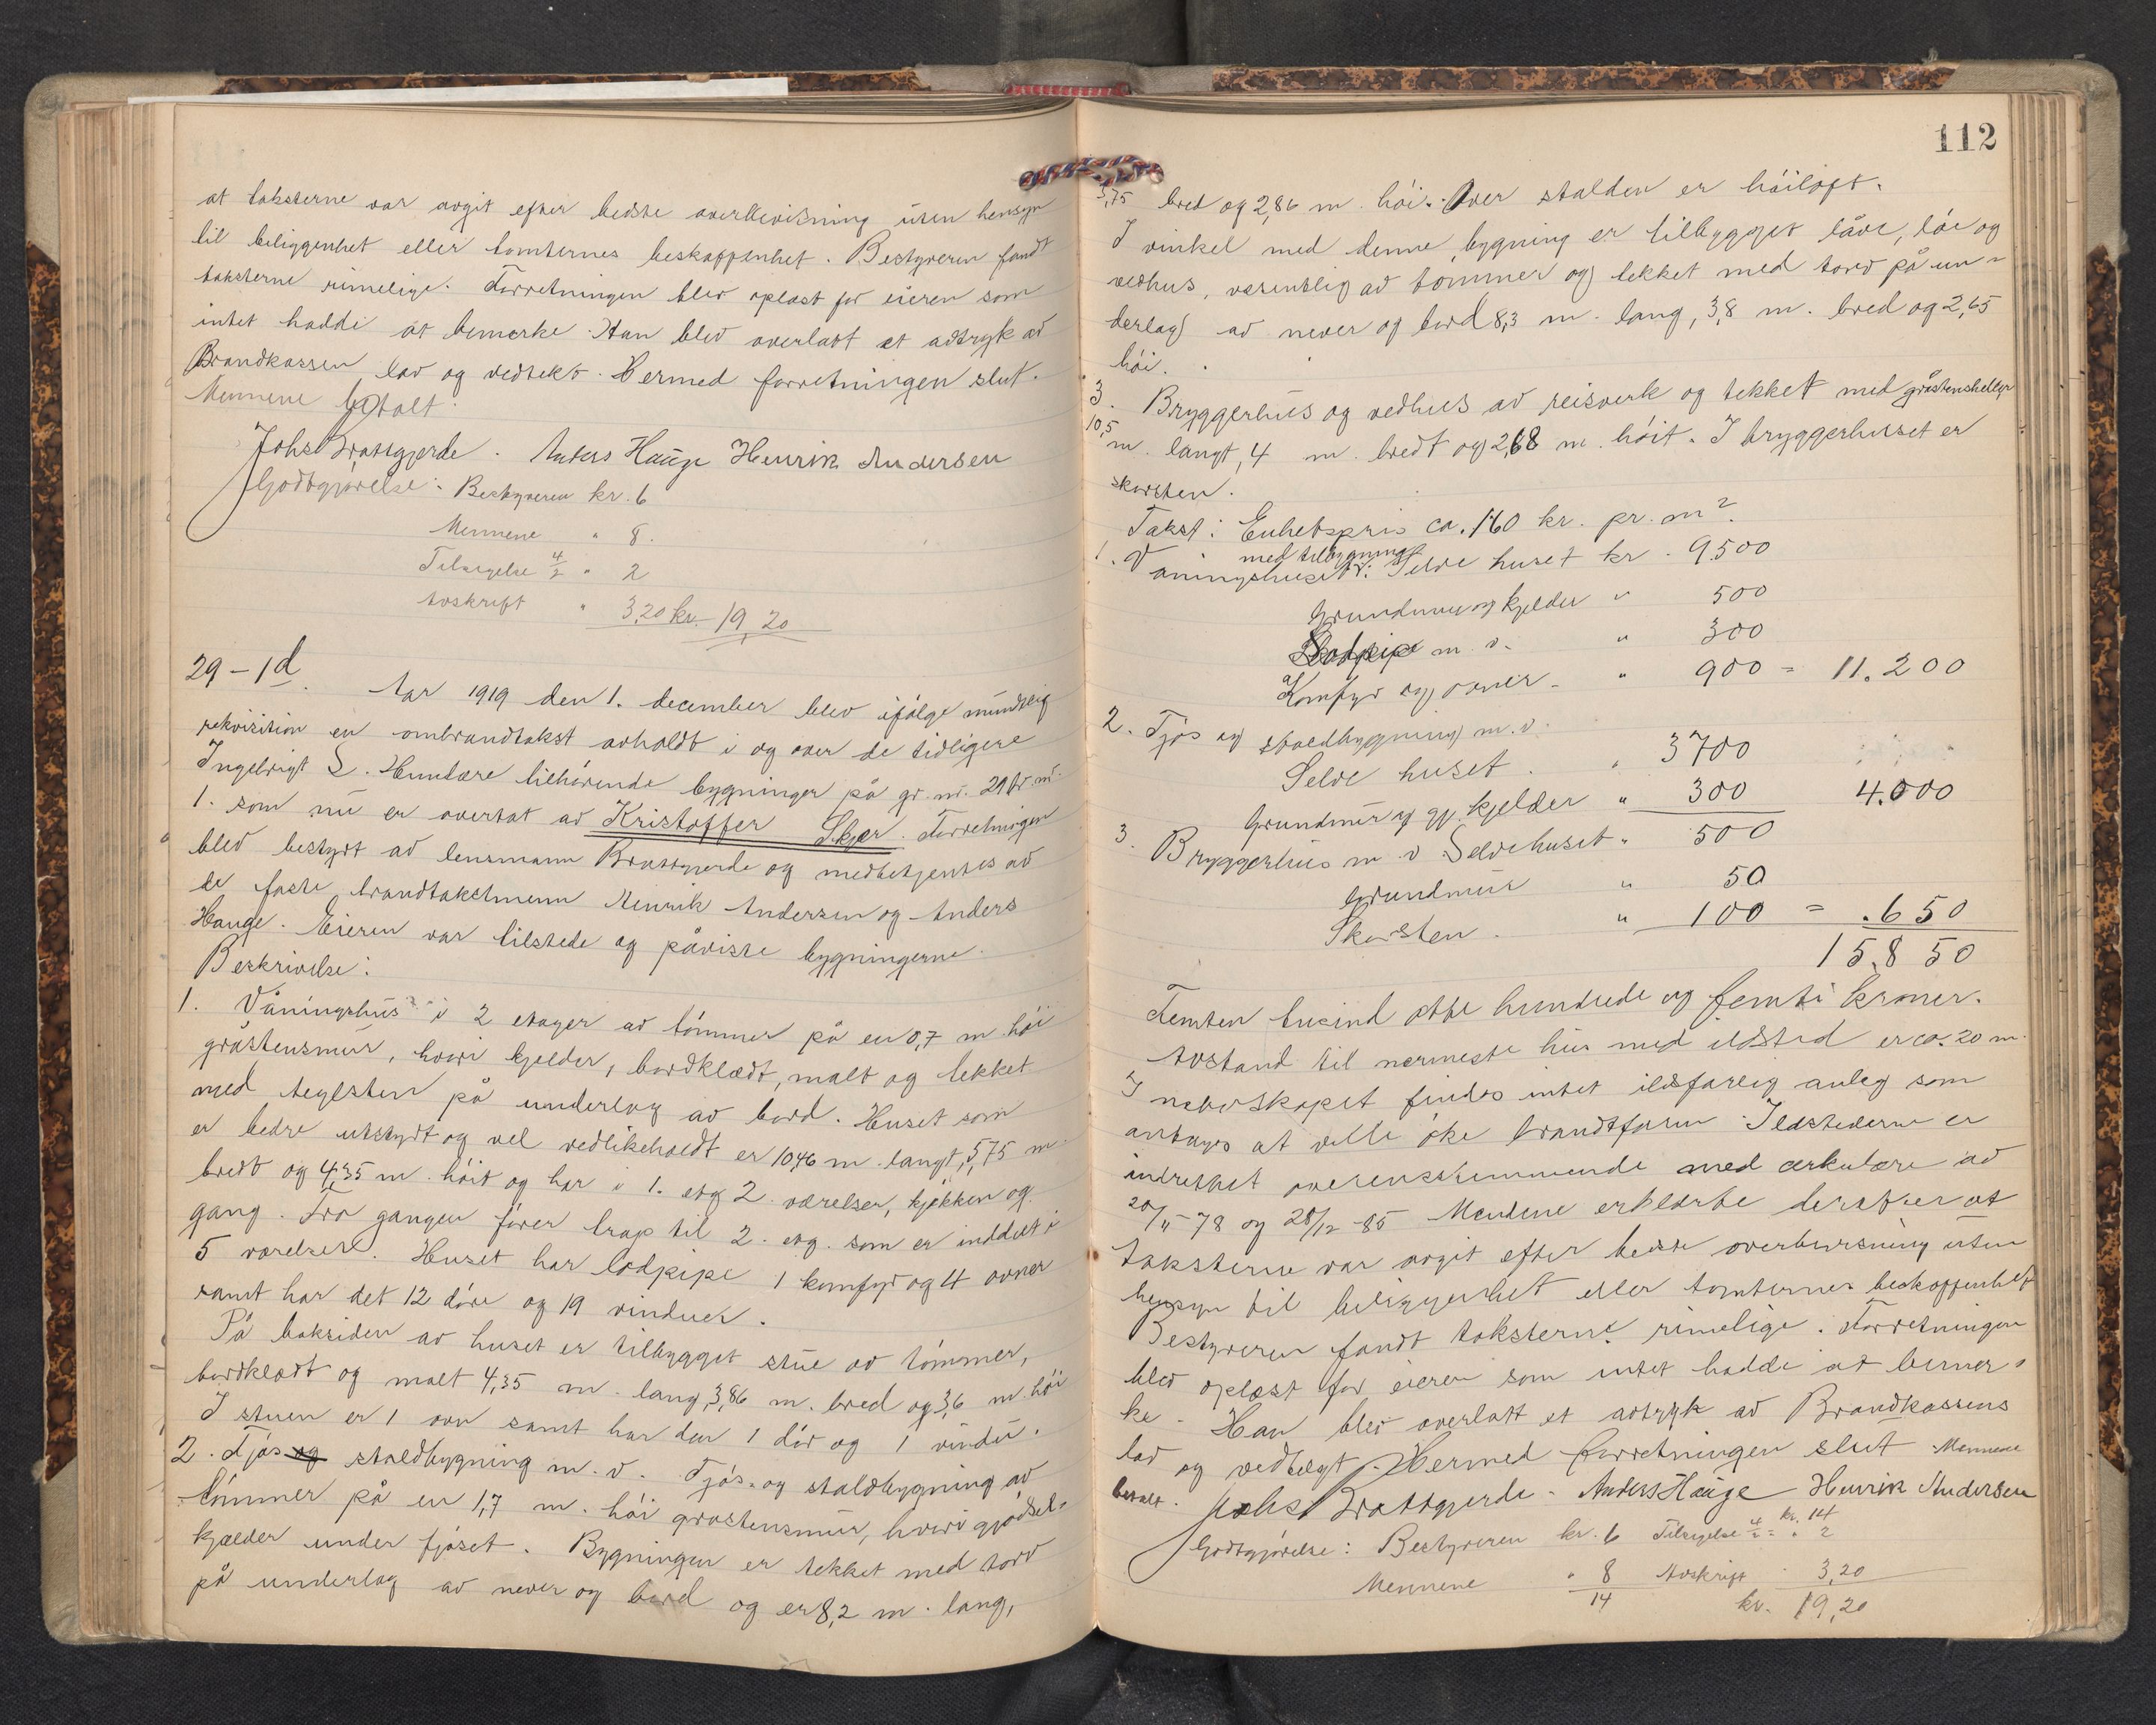 at taksterne var avgit efter bedste overbevisning uten hensyn
til beliggenhet eller tomternes beskaffenhet. Bestyreren fandt
taksterne rimelige. Forretningen blev oplæst for eieren som
intet hadde at bemerke. Han blev overlatt et avtryk av
Brandkassen lov og vedtekt. Hermed forretningen slut.
Mennene betalt.
Johs Brattgjerde. Anders Hauge Henrik Andersen
Godtgjørelse: Bestyreren kr. 6
Mennene " 8.
Tilsigelse 4/2 " 2
Avskrift " 3,20 kr. 19,20
29-1d. Aar 1919 den 1. december blev ifølge mundtlig
rekvisition en ombrandtakst avholdt i og over de tidligere
Ingebrigt S. tilhørende bygninger på gr. nr. 29 br. nr.
1. som nu er overtat av Kristoffer Skjær. Forretningen
blev bestyrt av lensmann Brattgjerde og medbetjentes av
de faste brandtakstmenn Henrik Andersen og Anders
Hauge. Eieren var tilstede og påviste bygningerne.
Beskrivelse:
1. Våningshus i 2 etager av tømmer på en 0,7 m høi
gråstensmur, hvori kjelder, bordklædt, malt og tekket
med teglsten på underlag av bord. Huset som
er bedre utstyrt og vel vedlikeholdt er 10,46 m. langt, 5,75 m
bredt og 4,35 m. høit og har i 1. etg 2 værelser, kjøkken og
gang. Fra gangen fører trap til 2. etg. som er inddelt i
5 værelser. Huset har lodpipe 1 komfyr og 4 ovner
samt har det 12 døre og 19 vinduer.
På baksiden av huset er tilbygget stue av tømmer,
bordklædt og malt 4,35 m. lang, 3,86 m. bred og 3,6 m. høi
I stuen er 1 ovn samt har den 1 dør og 1 vindu.
2. Fjøs og staldbygning m. v. Fjøs- og staldbygning av
tømmer på en 1,7 m. høi gråstensmur, hvori gjødsel-
kjælder under fjøset. Bygningen er tekket med torv
på underlag av never og bord og er 8,2 m. lang,
112
3,75 bred og 2,86 m. høi. Over stalden er høiloft.
I vinkel med denne bygning er tilbygget låve, løe og
vedhus, væsentlig av tømmer og tekket med torv på un-
derlag av never og bord 8,3 m. lang, 3,8 m. bred og 2,65
høi.
3. Bryggerhus og vedhus av reisverk og tekket med gråstensheller
10,5 m. langt, 4 m. bredt og 2,68 m. høit. I bryggerhuset er
skorsten.
Takst: Enhetspris ca. 160 kr. pr. m2.
1. Våningshuset med tilbygning: Selve huset kr. 9500
Grundmur og kjelder " 500
Lodpipe m. v. " 300
Komfyr og ovner " 900 = 11.200
2. Fjøs og staldbygning m. v.
Selve huset. " 3700
Grundmur og gj. kjelder " 300 4.000
3. Bryggerhus m. v. Selve huset " 500
Grundmur " 50
Skorsten. " 100 = .650
15.850
Femten tusind otte hundrede og femti kroner.
Avstand til nærmeste hus med ildsted er ca. 20 m.
I naboskapet findes intet ildsfarlig anleg som
antages at ville øke brandfaren. Ildstederne er
indrettet overensstemmende med cirkulære av
20/5-78 og 28/12-85 Mændene erklærte derefter at
taksterne var avgit efter bedste overbevisning uten
hensyn til beliggenhet eller tomternes beskaffenhet
Bestyreren fandt taksterne rimelige. Forretningen
blev oplæst for eieren som intet hadde at bemer-
ke. Han blev overlatt et avtryk av Brandkassens
lov og vedtægt. Hermed forretningen slut Mennene
betalt. Johs Brattgjerde. Anders Hauge Henrik Andersen
kr. 14
Godtgjørelse: Bestyreren kr. 6 Tilsigelse 4/2 = " 2
Mennene " 8 Avskrift 3,20
14 kr. 19,20